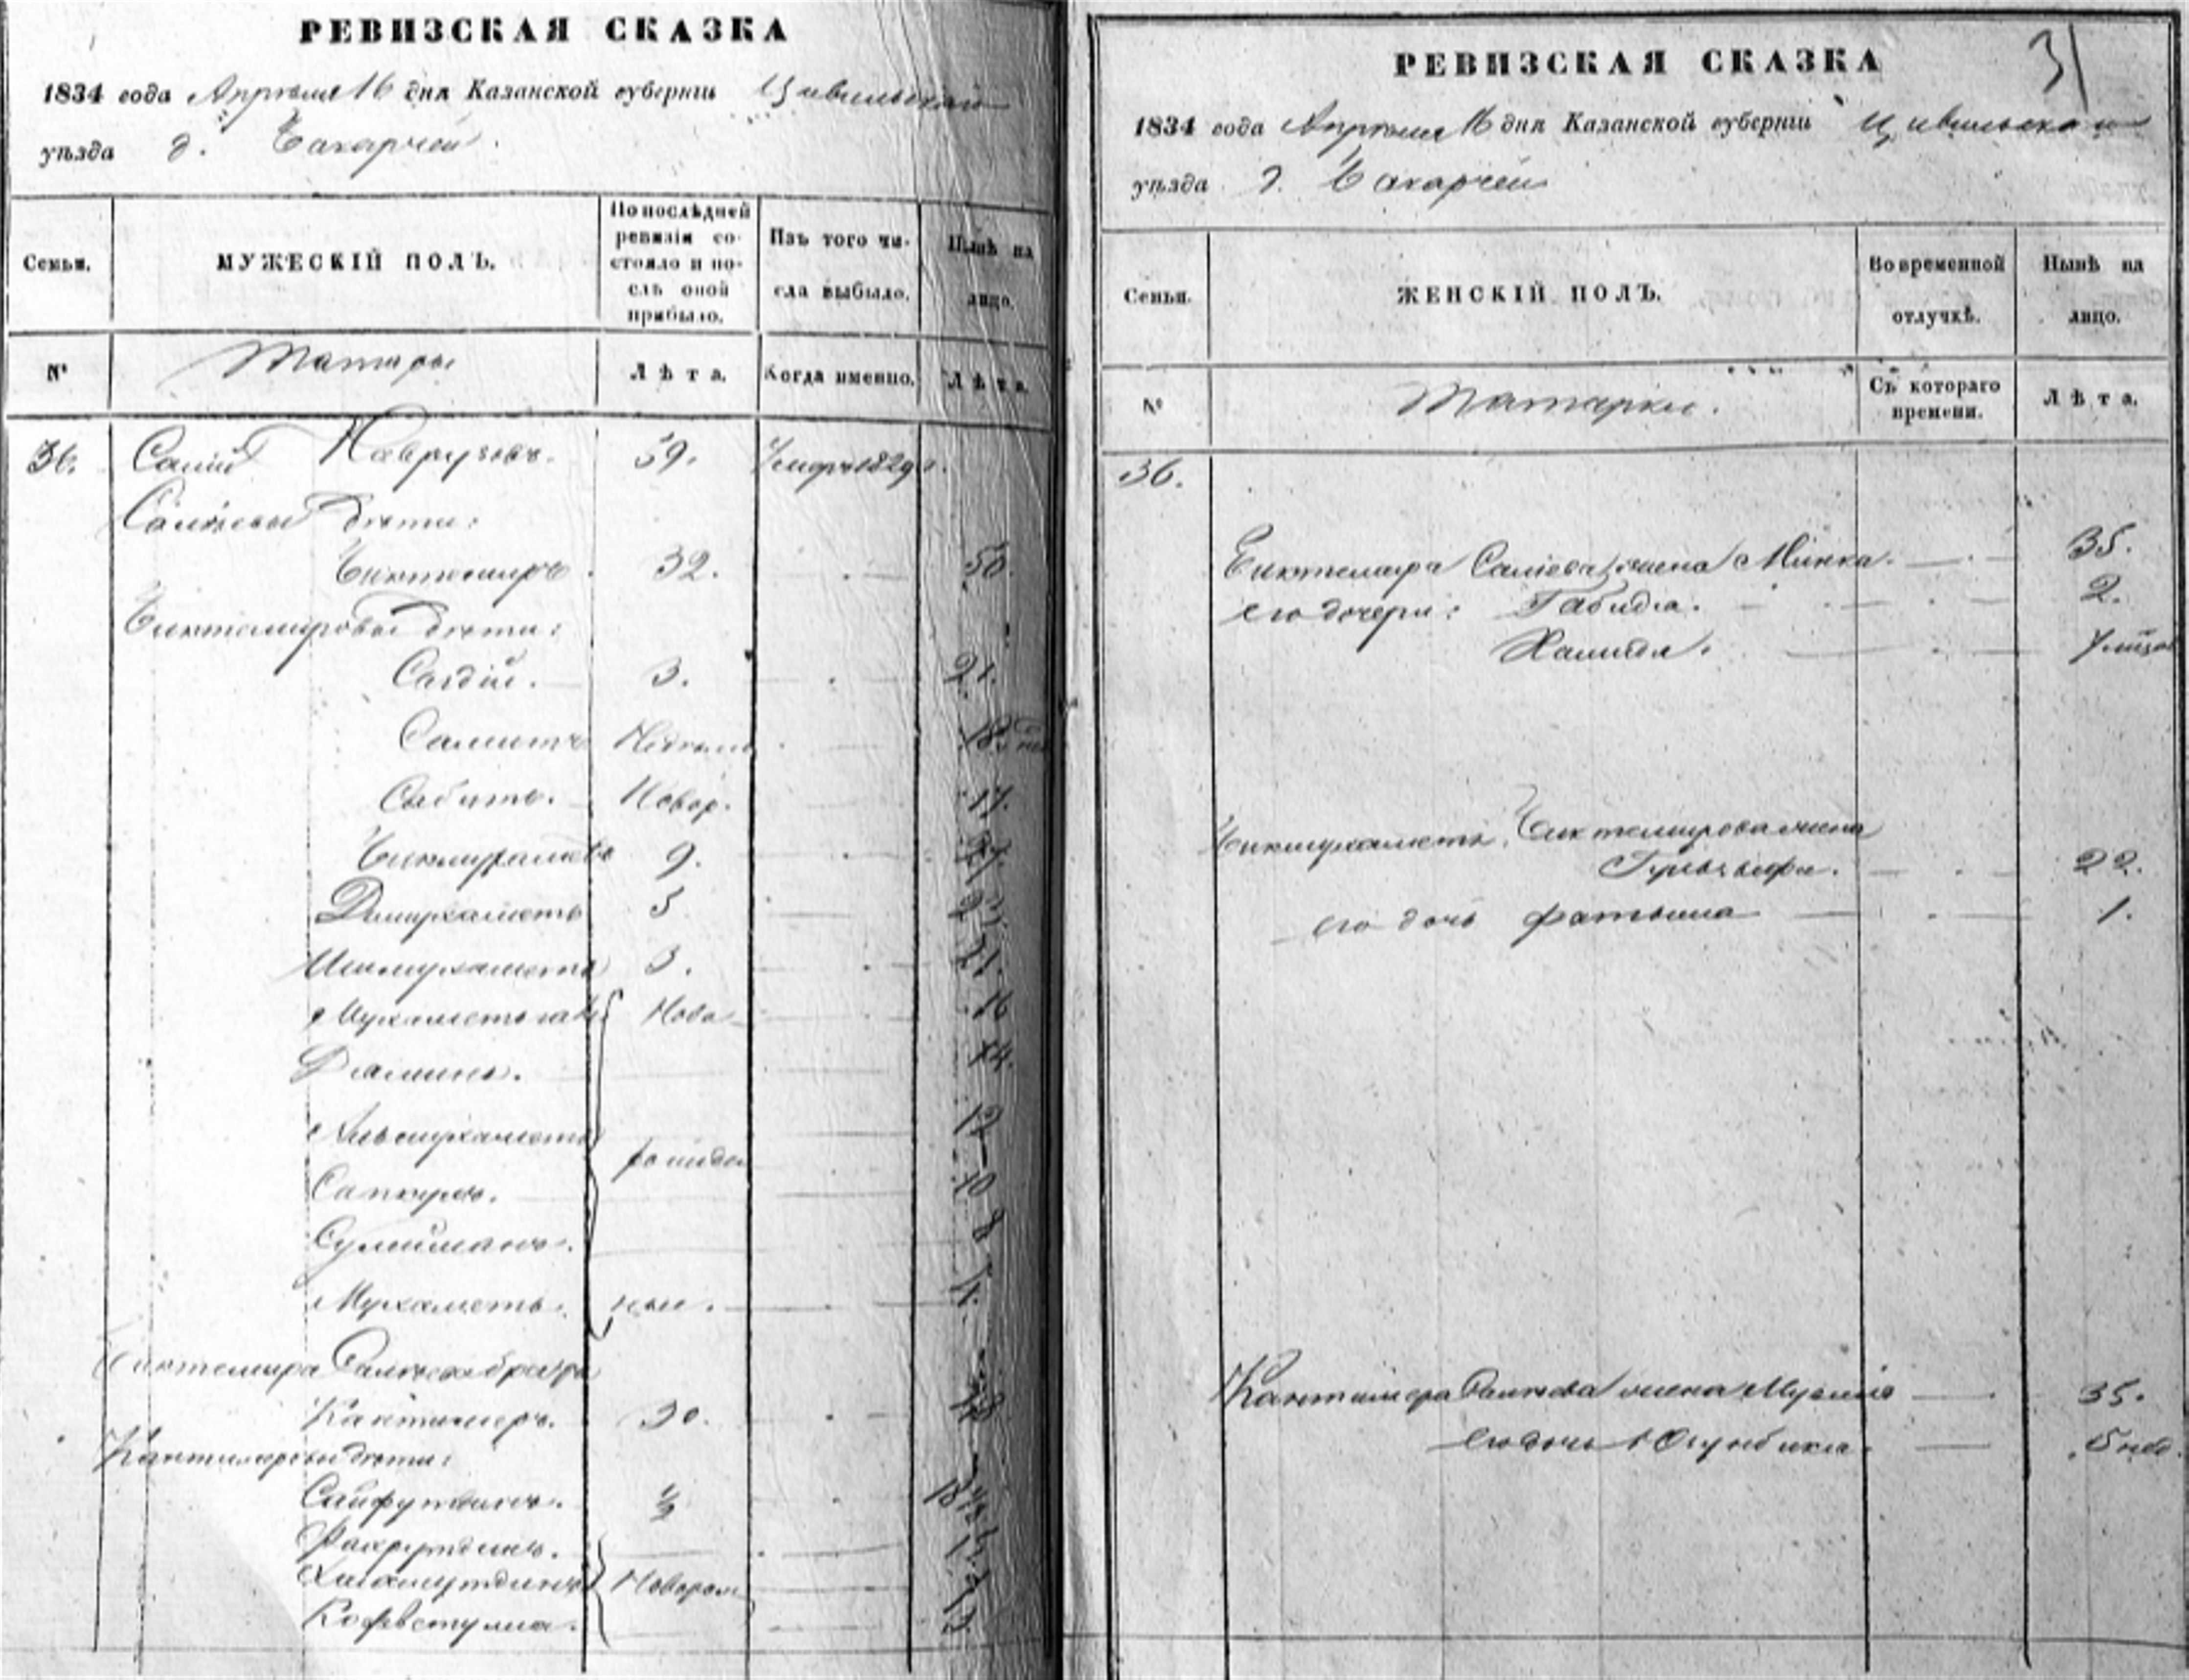 РЕВИЗСКАЯ СКАЗКА
1834 года Апреля 16 дня Казанской губерніи Цивильской
уѣзда д. Бакарчей.
Семьи.
МУЖЕСКІЙ ПОЛЪ.
По послѣдней ревизіи состояло и послѣ оной прибыло.
Изъ того числа выбыло.
Нынѣ на лицо.
№
Татары
Лѣта.
Когда именно.
Лѣта.
36. Салій Наврузовъ. 59. Умеръ 1829 г.
Саліевы дѣти:
Биктемиръ. 32. 50.
Биктемировы дѣти:
Сагдій. 3. 21.
Самитъ 18
Сабитъ. Новор. 17.
Бикмухаметъ 9. 27.
Динмухаметъ 5 23.
Ишмухаметъ 3. 21.
Мухаметьгали Ново 16
14.
Альмухаметъ рожден 12
10
Сулейманъ. 8
Мухаметъ. ные. 1.
Биктемира Саліева братъ
Кантимеръ. 30. 48
Кантимеровы дѣти:
Сайфутдинъ. ½ 18½
Фахрутдинъ.
Новорож
РЕВИЗСКАЯ СКАЗКА
31
1834 года Апреля 16 дня Казанской губерніи Цивильской
уѣзда д. Бакарчей
Семьи.
ЖЕНСКІЙ ПОЛЪ.
Во временной отлучкѣ.
Нынѣ на лицо.
№
Татарки.
Съ котораго времени.
Лѣта.
36.
Биктемира Саліева жена Минка. 35.
его дочери: Габида. 2.
Хамида.
Бикмухаметъ Биктемирова жена
22.
его дочь Фатыма 1.
Кантимера Саліева жена 35.
его дочь Юсунбика. 5 нед.